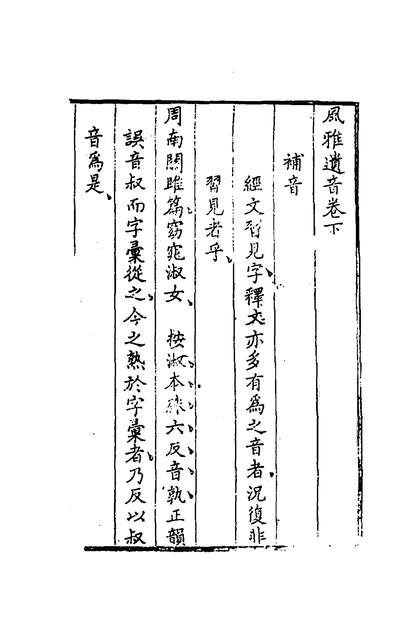 風雅遺音卷下
補音
經文習見字釋文亦多有爲之音者況復非
習見者乎
周南關雎篇窈窕淑女　按淑本殊六反音孰正韻
誤音叔而字彙從之今之熟於字彙者乃反以叔
音爲是